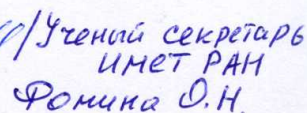 /Ученый секретарь
ИМЕТ РАН
Фомина О.Н.